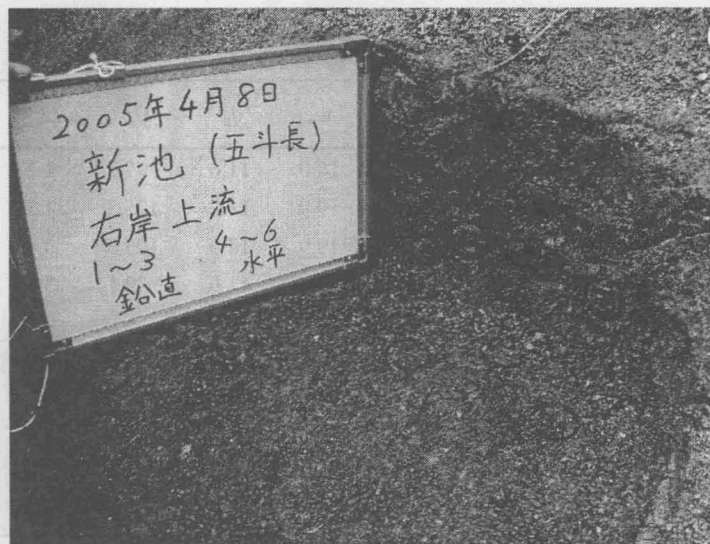 2005年4月8日
新池 (五斗長)
右岸上流
1～3 4～6
鉛直 水平